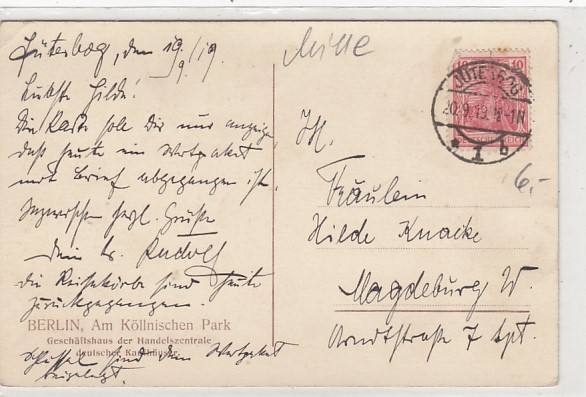 Jüterbog, den 19/9/19
Liebste Hilde!
Die Karte soll Dir nur anzeigen,
daß heute ein Wertpaket
mit Brief abgegangen ist.
Inzwischen herzl. Grüße
Dein Rudolf
die Reisekörbe sind heute
zurückgegangen.
Schlüssel sind dem Wertpaket
beigelegt.
BERLIN, Am Köllnischen Park
Geschäftshaus der Handelszentrale
deutscher Kaufhäuser.
JÜTERBOG
20.9.19. 11-12V.
* 1 b
10 10
DEUTSCHES REICH
6.-
Fräulein
Hilde Knacke
Magdeburg W.
Arndtstraße 7 Ipt.